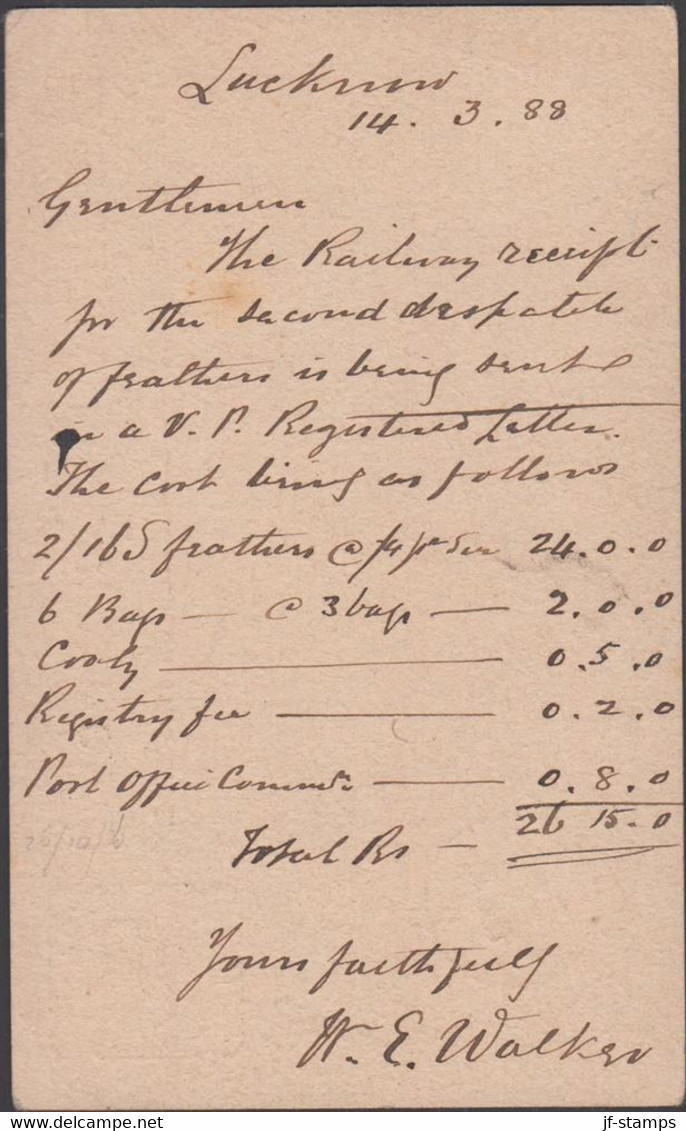 Lucknow
14. 3. 88
Gentlemen
The Railway receipt
for the second despatch
of feathers is being sent
in a V. P. Registered Letter.
The cost being as follows
2/16 S feathers @ /4/ per Seer 24.0.0
6 Bags — @ 3 bags — 2.0.0
Cooly — 0.5.0
Registry fee — 0.2.0
Post Office Commn — 0.8.0
Total Rs — 26 15.0
Yours faithfully
W. E. Walker
jf-stamps